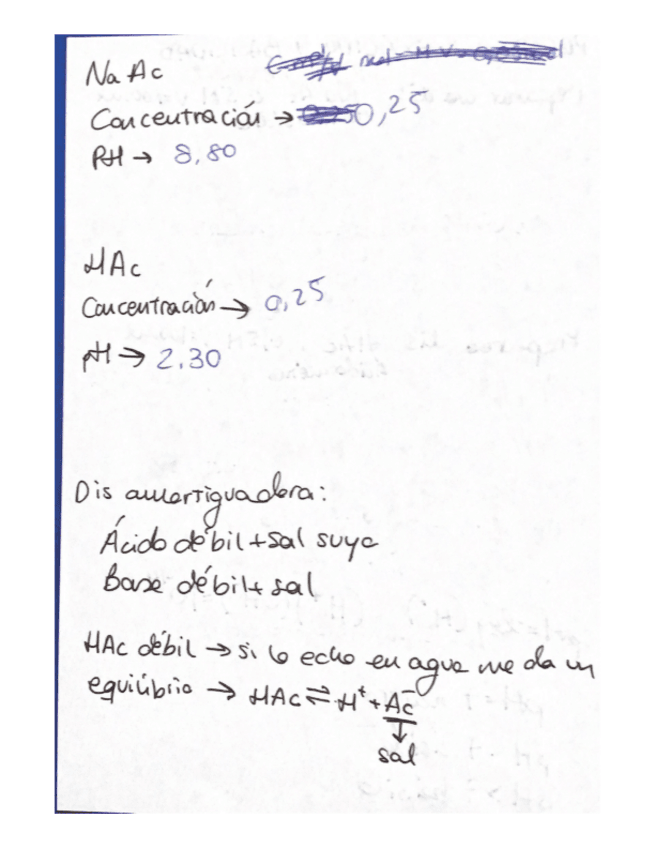 NaAc
Concentración → 0,25
PH → 8,80
HAc
Concentración → 0,25
pH → 2.30
Dis amortiguadora:
Ácido débil + sal suya
Base débil + sal
HAc débil → si lo echo en agua me da un
equilibrio → HAc ⇌ H⁺ + Ac⁻
sal